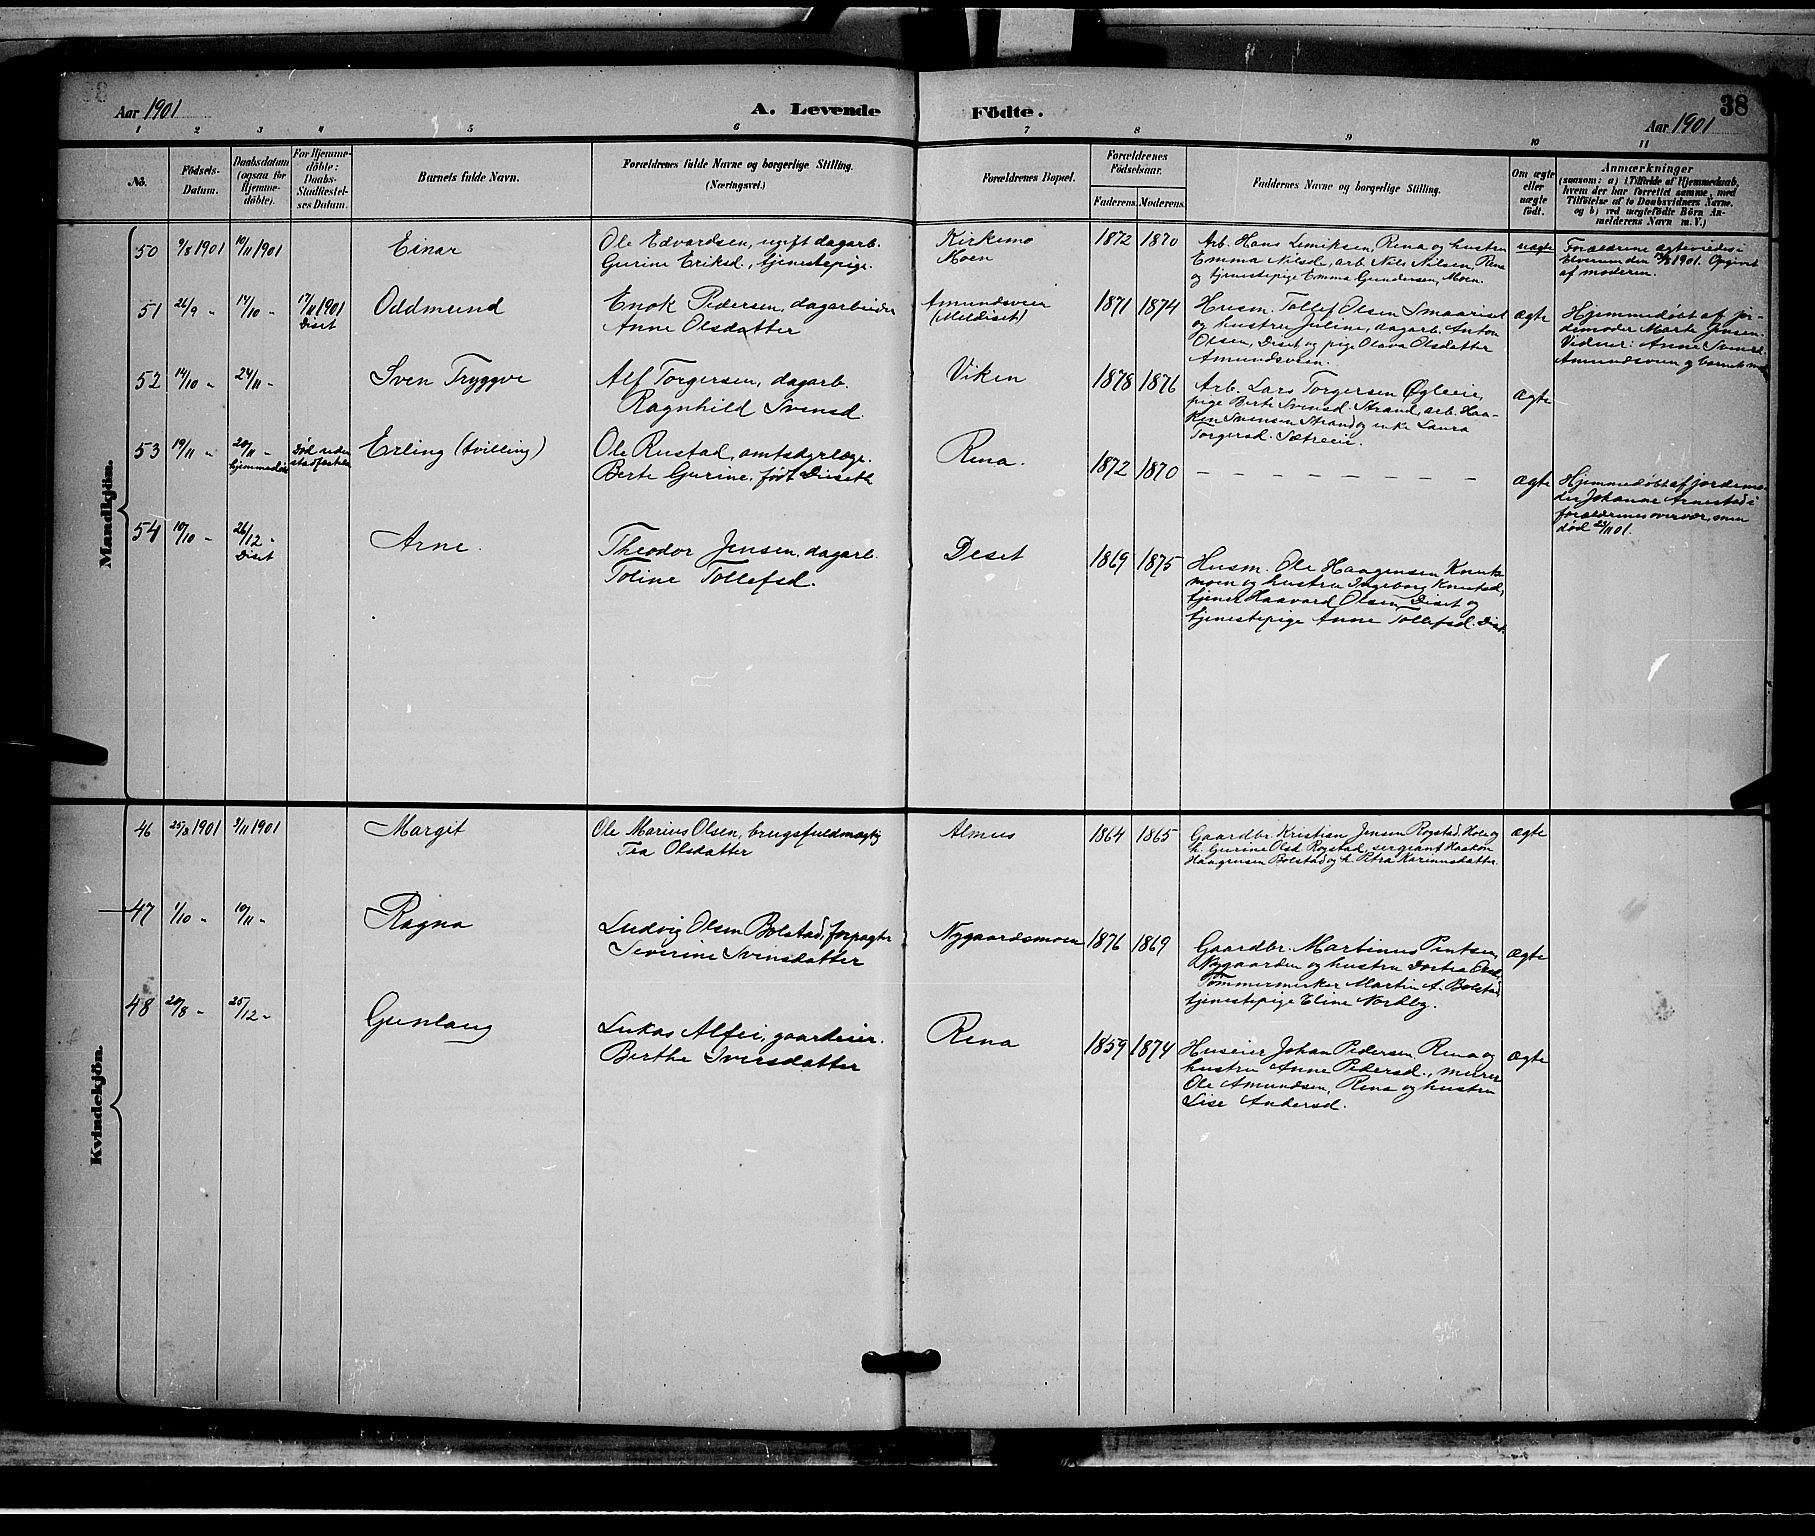 38
Aar 1901 A. Levende Födte. Aar 1901
1 2 3 4 5 6 7 8 9 10 11
No.
Födsels-
Datum.
Daabsdatum
(ogsaa for
Hjemme-
døbte).
For Hjemme-
döbte:
Daabs-
Stadfæstel-
ses Datum.
Barnets fulde Navn.
Forældrenes fulde Navne og borgerlige Stilling.
(Næringsvei.)
Forældrenes Bopæl.
Forældrenes
Födselsaar.
Faderens. Moderens.
Faddernes Navne og borgerlige Stilling.
Om ægte
eller
uægte
födt.
Anmærkninger
(saasom: a) i Tilfælde af Hjemmedaab,
hvem der har forrettet samme, med
Tilföielse af to Daabsvidners Navne.
og b) ved uægtefödte Börn An-
melderens Navn m. V.)
Mandkjön.
50 9/8 1901 10/11 1901 Einar
Ole Edvardsen, ugift dagarb.
Gurine Eriksd., tjenestepige.
Kirkemo
Moen
1872 1870
Arb. Hans Rena og hustru
Emma Nilsd., arb. Nils Nilsen, Rena
og tjenestepige Emma Gundersen, Moen.
uægte
Forældrene ægteviedes i
Elverum den 1901. Opgivet
af moderen.
51 26/9 - 14/10 - 17/11 1901
Diset
Oddmund
Enok Pedersen, dagarbeider
Anne Olsdatter
Amundsveen
(Meldiset)
1871 1874
Husm. Tollef Olsen Smaarist
og hustru Juline, dagarb. Anton
Olsen, Diset og pige Olava Olsdatter
Amundsveen.
ægte
Hjemmedøbt af jor-
demoder Marte Jensen.
Vidner: Anne Svensd.
Amundsveen og barnets mor
52 14/10 - 24/11 - Sven Tryggve
Alf Torgersen, dagarb.
Ragnhild Svensd.
Viken
1878 1876
Arb. Lars Torgersen Øgleie,
pige Berte Svensd. Strand, arb. Haa-
ken Svensen Strand og enke Laura
Torgersd. Sætreeie.
ægte
53 19/11 - 20/11 -
hjemmedøbt
Død uden
stadfæstelse
Erling (tvilling)
Ole Rustad, amtsdyrlæge.
Berte Gurine, født Diseth
Rena.
1872 1870
- - - - - - - -
ægte
Hjemmedøbt af jordemo-
der Johanne Arnestad i
forældrenes overvær, men
død 01.
54 10/10 - 26/12 -
Diset
Arne.
Theodor Jensen, dagarb.
Toline Tollefsd.
Deset
1869 1875
Husm. Ole Haagensen Knuts-
moen og hustru Ingeborg Knutsd.,
tjener Haavard Olsen, Diset og
tjenestepige Anne Tollefsd. Diset.
Kvindekjön.
46 25/8 1901 3/11 1901 Margit
Ole Marius Olsen, brugsfuldmægtig
Tea Olsdatter
Almus
1864 1865
Gaardbr. Kristian Jensen Rogstad. Hoie og
h. Gurine Olsd. Rogstad, sergeant Haakon
Haagensen Bolstad og h. Petra Karinusdatter.
ægte
47 1/10 - 10/11 - Ragna
Ludvig Olsen Bolstad, forpagter
Severine Svensdatter
Nygaardsmoen
1876 1869
Gaardbr. Martinus Pintsen,
Nygaarden og hustru Dortea Olsd.,
Tømmermerker Martin A. Bolstad,
tjenestepige Eline Nordby.
ægte
48 20/8 - 25/12 - Gunlaug
Lukas Alfei, gaardeier.
Berthe Iversdatter
Rena
1859 1874
Huseier Johan Pedersen, Rena og
hustru Anne Pedersd., murer
Ole Amundsen, Rena og hustru
Lise Andersd.
ægte